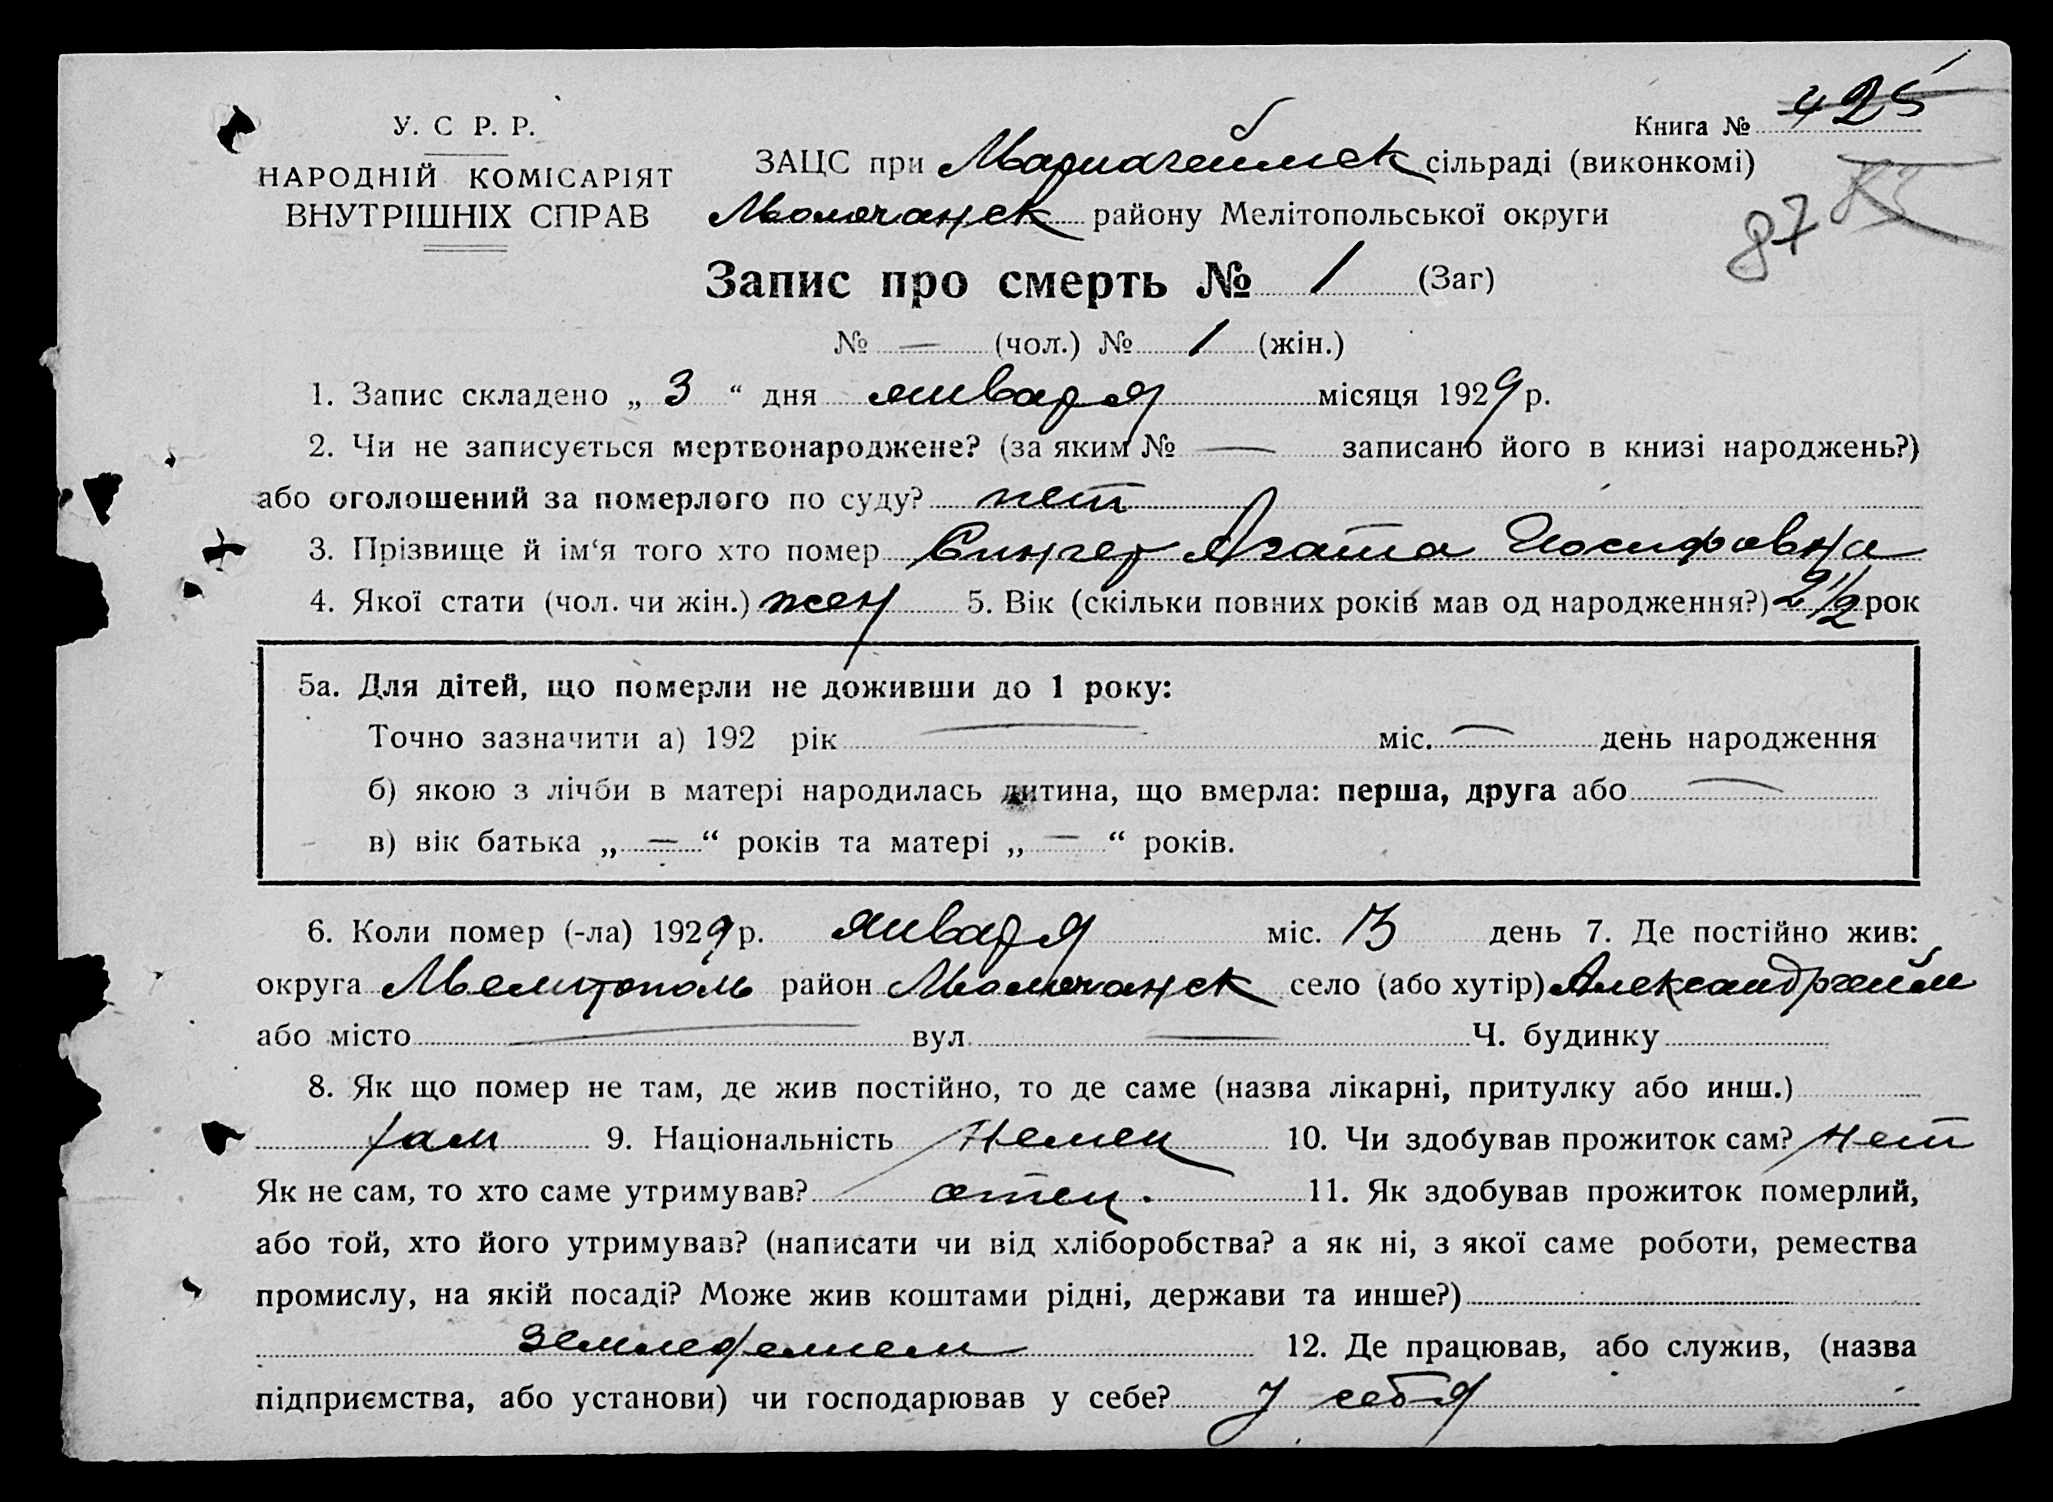 У. С Р. Р.
НАРОДНІЙ КОМІСАРІЯТ
ВНУТРІШНІХ СПРАВ
Книга № 425
87
ЗАЦС при Мариагеймск сільраді (виконкомі)
Молочанск району Мелітопольської округи
Запис про смерть № 1 (Заг)
№ — (чол.) № 1 (жін.)
1. Запис складено „ 3 “ дня января місяця 1929 р.
2. Чи не записується мертвонароджене? (за яким № — записано його в книзі народжень?)
або оголошений за померлого по суду? нет
3. Прізвище й ім‘я того хто помер Сингер Агата Иосифовна
4. Якої стати (чол. чи жін.) жен 5. Вік (скільки повних років мав од народження?) 2 1/2 рок
5а. Для дітей, що померли не доживши до 1 року:
Точно зазначити а) 192 рік — міс. — день народження
б) якою з лічби в матері народилась дитина, що вмерла: перша, друга або —
в) вік батька „ — “ років та матері „ — “ років.
6. Коли помер (-ла) 1929 р. января міс. день 7. Де постійно жив:
округа Мелитополь район Молочанск село (або хутір) Александргейм
або місто — вул. — Ч. будинку
8. Як що помер не там, де жив постійно, то де саме (назва лікарні, притулку або инш.)
там 9. Національність Немец 10. Чи здобував прожиток сам? нет
Як не сам, то хто саме утримував? отец. 11. Як здобував прожиток померлий,
або той, хто його утримував? (написати чи від хліборобства? а як ні, з якої саме роботи, ремества
промислу, на якій посаді? Може жив коштами рідні, держави та инше?)
земледелием 12. Де працював, або служив, (назва
підприємства, або установи) чи господарював у себе? у себя